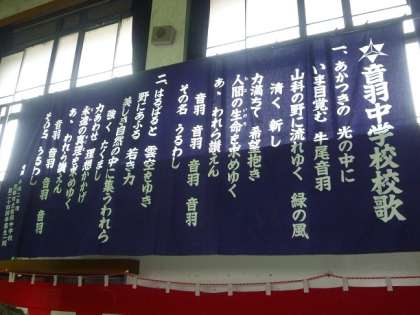 音羽中学校校歌
一、あかつきの 光の中に
いま目覚む 牛尾音羽
山科の野に流れゆく 緑の風
清く 新し
力満ちて 希望抱き
人間の生命を求めゆく
あゝわれら讃えん
音羽 音羽 音羽
その名 うるわし
二、はるばると 雲空をゆき
野にあふる 若き力
美しき自然の中に集うわれら
強く たくまし
力あわせ 理想をかかげ
永遠の真理を求めゆく
あゝわれら讃えん
音羽 音羽 音羽
その名 うるわし